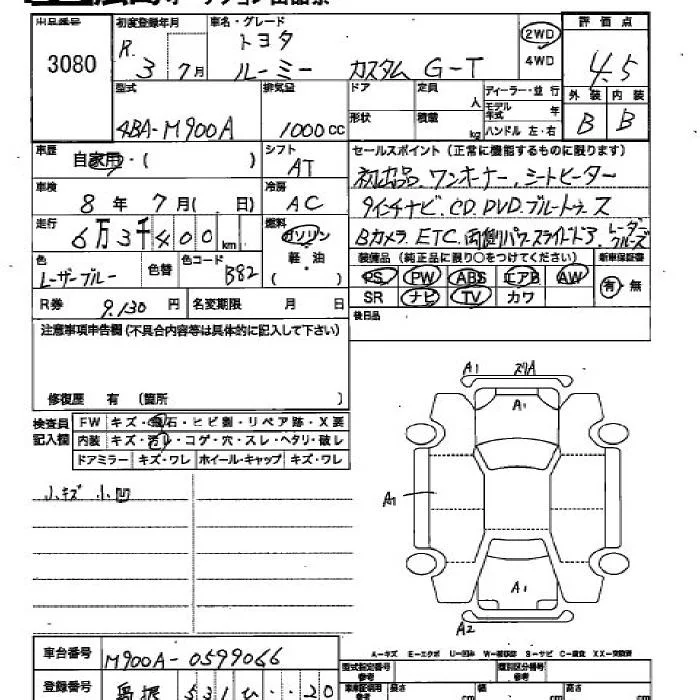 出品番号 初度登録年月 車名・グレード 2WD 評価点
3080 R. 3 7月 トヨタ 4WD 4.5
ルーミー カスタム G-T
型式 排気量 ドア 定員 人 ディーラー・並行 外装 内装
4BA-M900A 1000cc 形状 積載 kg モデル年式 年 ハンドル 左・右 B B
車歴 自家用・( ) シフト AT セールスポイント(正常に機能するものに限ります)
初出品、ワンオーナー、シートヒーター
車検 8年 7月( 日) 冷房 AC 9インチナビ、CD、DVD、ブルートゥース
走行 6万3千400km 燃料 ガソリン Bカメラ、ETC、両側パワースライドドア、レーダークルーズ
色 レーザーブルー 色替 色コード B82 軽・油 ( ) 装備品(純正品に限り○をつけてください) 新車保証書
PS PW ABS エアB AW 有・無
R券 9,130円 名変期限 月 日 SR ナビ TV カワ
注意事項申告欄(不具合内容等は具体的に記入して下さい) 後日品
修復歴 有 (箇所 )
検査員記入欄 FW キズ・飛石・ヒビ割・リペア跡・X要
内装 キズ・汚レ・コゲ・穴・スレ・ヘタリ・破レ
ドアミラー キズ・ワレ ホイール・キャップ キズ・ワレ
小キズ 小凹
A1 スリA
A1
A1
A1
A2
A-キズ E-エクボ U-凹み W-補修跡 S-サビ C-腐食 XX-交換済
車台番号 M900A-0599066
型式指定番号 類別区分番号
登録番号 島根 531 ひ ・・20
長さ cm 幅 cm 高さ cm